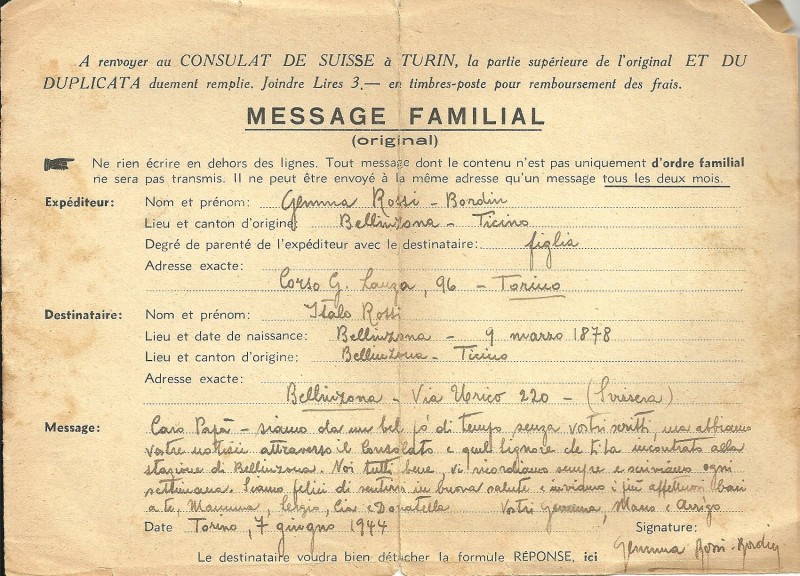 A renvoyer au CONSULAT DE SUISSE à TURIN, la partie supérieure de l'original ET DU
DUPLICATA duement remplie. Joindre Lires 3.— en timbres-poste pour remboursement des frais.
MESSAGE FAMILIAL
(original)
Ne rien écrire en dehors des lignes. Tout message dont le contenu n'est pas uniquement d'ordre familial
ne sera pas transmis. Il ne peut être envoyé à la même adresse qu'un message tous les deux mois.
Expéditeur: Nom et prénom: Gemma Rossi - Bordin
Lieu et canton d'origine: Bellinzona - Ticino
Degré de parenté de l'expéditeur avec le destinataire: figlia
Adresse exacte:
Corso G. Lanza, 96 - Torino
Destinataire: Nom et prénom: Italo Rossi
Lieu et date de naissance: Bellinzona - 9 marzo 1878
Lieu et canton d'origine: Bellinzona - Ticino
Adresse exacte:
Bellinzona - Via Urico 220 - (Svizzera)
Message: Caro Papà - siamo da un bel po' di tempo senza vostri scritti, ma abbiamo
vostre notizie attraverso il Consolato e quel signore che ti ha incontrato alla
stazione di Bellinzona. Noi tutti bene, vi ricordiamo sempre e scriviamo ogni
settimana. Siamo felici di sentirvi in buona salute e inviamo i più affettuosi baci
a te, Mamma, Sergio, Cia e Donatella vostri Gemma, Mario e Arrigo
Date Torino, 7 giugno 1944 Signature:
Gemma Rossi-Bordin
Le destinataire voudra bien détacher la formule RÉPONSE, ici